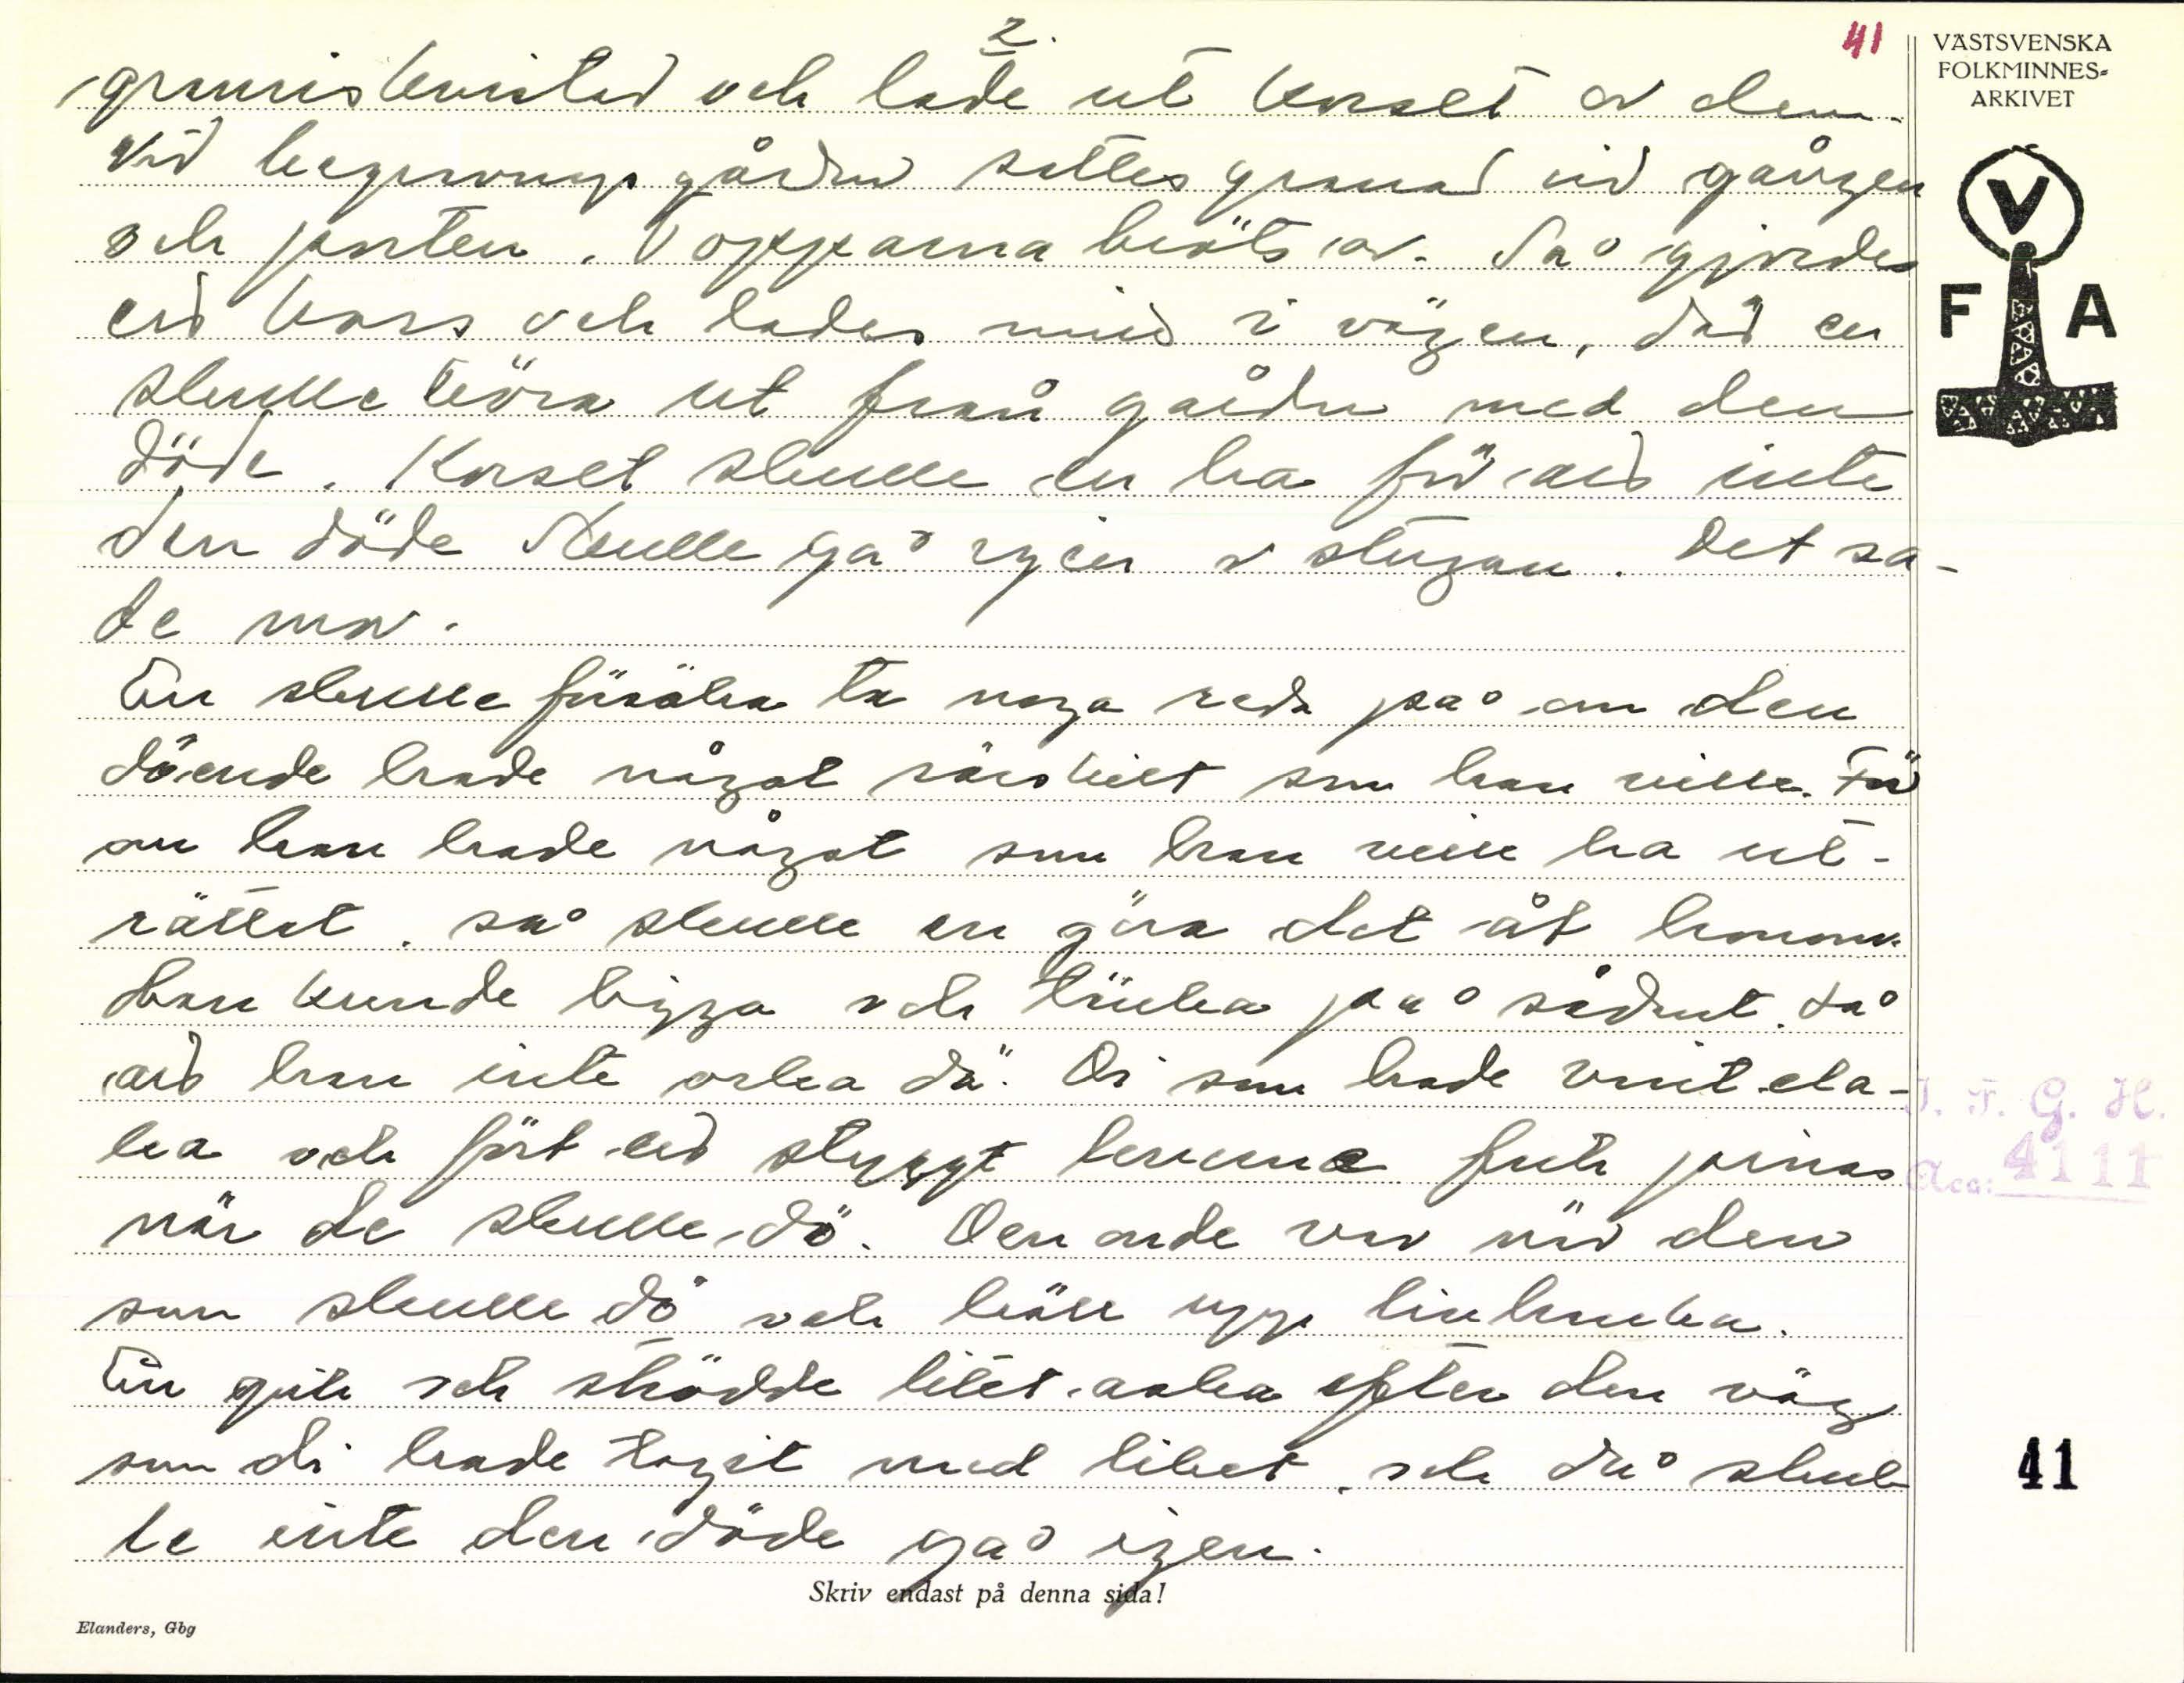 2.
41
VÄSTSVENSKA
FOLKMINNES-
ARKIVET
V
F A
granriskvistar och lade ut korset av dem.
Vid begravningsgården sattes granar vid gången
och porten. Topparna bröts av. Så gjordes
ett kors och lades mitt i vägen, där en
skulle köra ut från gården med den
döde. Korset skulle en ha för att inte
den döde skulle gå igen i stugan. Det sa-
de mor.
En skulle försöka ta noga reda på om den
döende hade något särskilt som han ville. För
om han hade något som han ville ha ut-
rättat, så skulle en göra det åt honom.
Han kunde ligga och tänka på sådant. så
att han inte orka dö. Di som hade varit ela-
ka och fört ett styggt leverne fick pinas
när de skulle dö. Den onde var när den
som skulle dö och höll upp
En gick och strödde litet aska efter den väg
som di hade tagit med liket, och då skul-
le inte den döde gå igen.
I. F. G. H.
Acc: 4111
41
Skriv endast på denna sida!
Elanders, Gbg